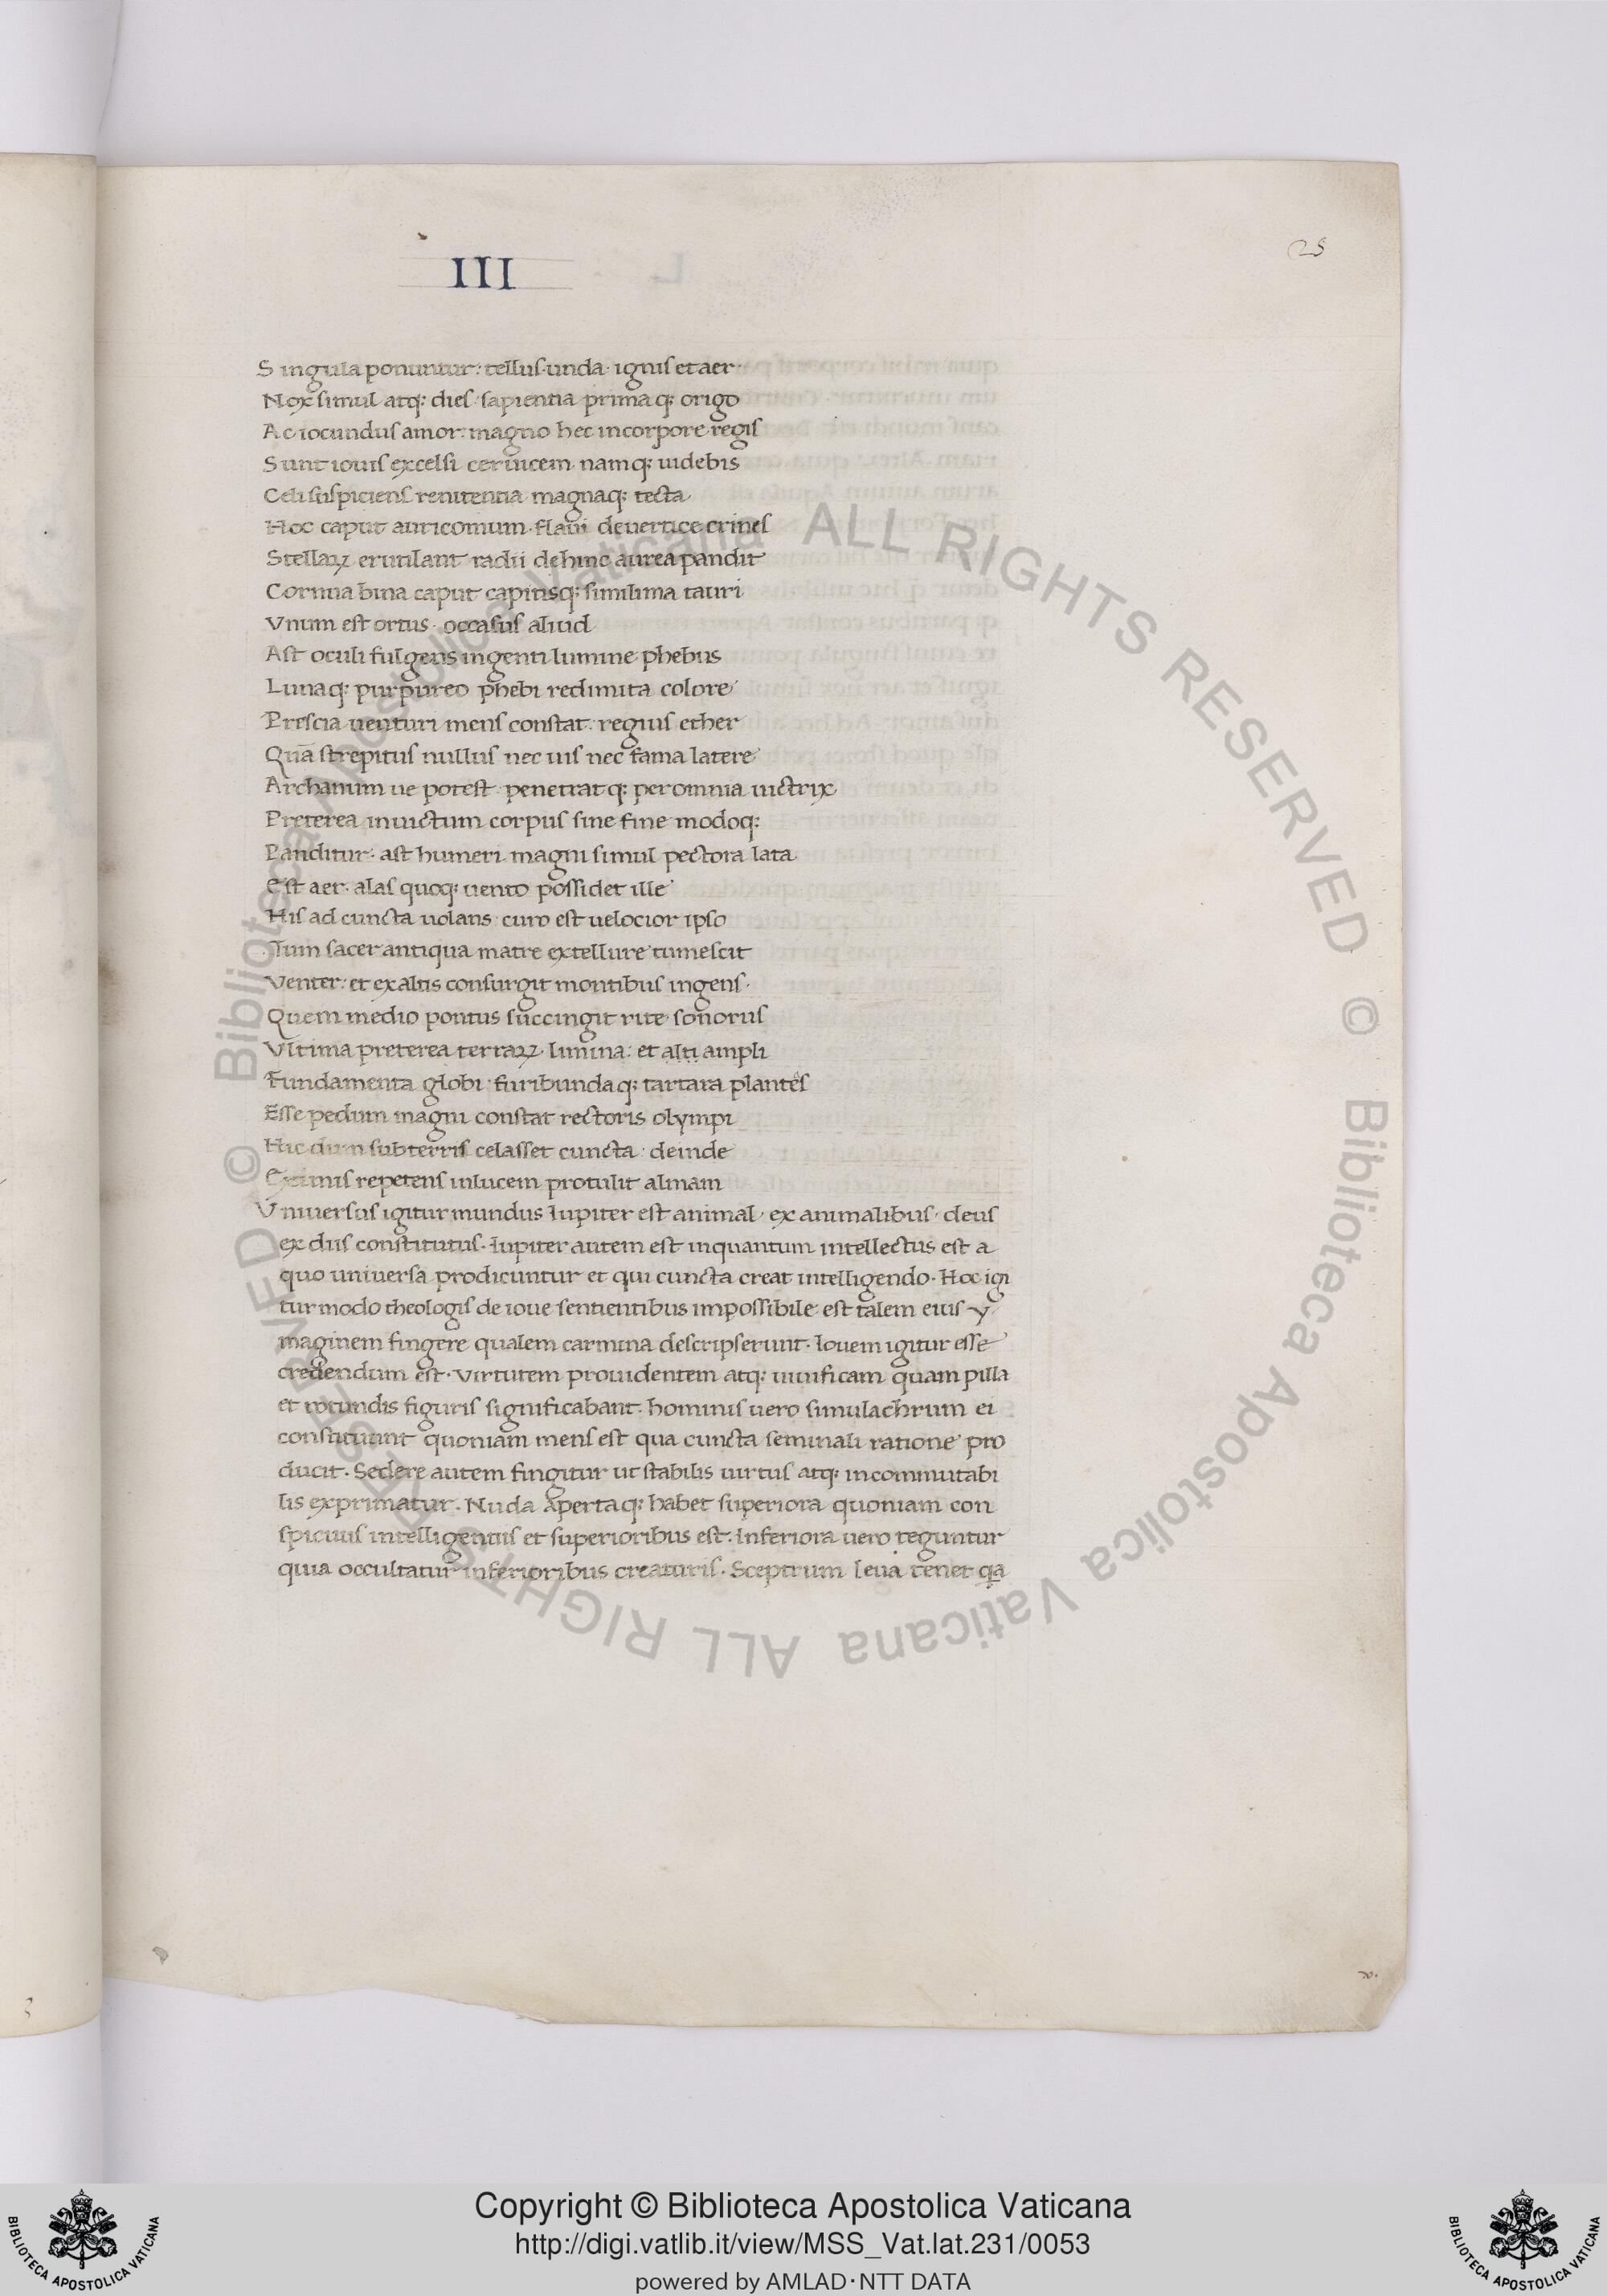 III
25
Singula ponuntur: tellus · unda · ignis et aer ·
Nox simul atq: dies · sapientia prima q: origo
Ac iocundus amor: magno hec in corpore regis
Sunt iouis excelsi ceruicem · namq: uidebis
Celi suspiciens renitentia magnaq: tecta
Hoc caput auricomum · flaui de uertice crines
Stellaꝝ erutilant radii dehinc aurea pandit
Cornua bina caput capitisq: simlima tauri
Vnum est ortus · occasus aliud
Ast oculi fulgens ingenti lumine phebus
Lunaq: purpureo phebi redimita colore
Prescia uenturi mens constat · regius ether
Quā strepitus nullus nec uis nec fama latere
Archanum ue potest penetrat q: per omnia uictrix
Preterea inuictum corpus sine fine modoq:
Panditur · ast humeri magni simul pectora lata
Est aer · alas quoq: uento possidet ille
His ad cuncta uolans · curo est uelocior ipso
Tum sacer antiqua matre ex tellure tumescit
Venter: et ex altis consurgit montibus ingens ·
Quem medio pontus succingit rite sonorus
Vltima preterea terraꝝ · limina: et alti ampli
Fundamenta globi · furibundaq: tartara plantes
Esse pedum magni constat rectoris olympi
Hic dum sub terris celasset cuncta: deinde
Ex imis repetens in lucem protulit almam
Vniuersus igitur mundus Iupiter est animal · ex animalibus · deus
ex diis constitutus · Iupiter autem est inquantum intellectus est a
quo uniuersa prodicuntur et qui cuncta creat intelligendo · Hoc igi
tur modo theologis de ioue sentientibus impossibile est talem eius y
maginem fingere qualem carmina descripserunt · Iouem igitur esse
credendum est · virtutem prouidentem atq: uiuificam quam pilla
et rotundis figuris significabant · hominis uero simulachrum ei
constituunt quoniam mens est qua cuncta seminali ratione pro
ducit · Sedere autem fingitur ut stabilis uirtus atq: incommutabi
lis exprimatur · Nuda apertaq: habet superiora quoniam con
spicuus intelligentiis et superioribus est · Inferiora uero teguntur
quia occultatur inferioribus creaturis · Sceptrum leua tenet qa
© Biblioteca Apostolica Vaticana ALL RIGHTS RESERVED © Biblioteca Apostolica Vaticana ALL RIGHTS RESERVED
Copyright © Biblioteca Apostolica Vaticana
http://digi.vatlib.it/view/MSS_Vat.lat.231/0053
powered by AMLAD·NTT DATA
BIBLIOTECA APOSTOLICA VATICANA
BIBLIOTECA APOSTOLICA VATICANA